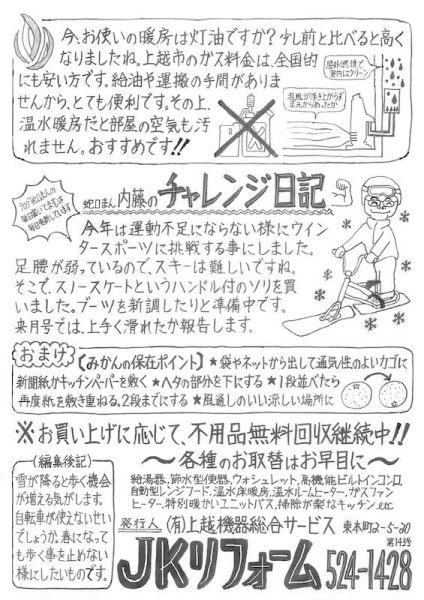 今、お使いの暖房は灯油ですか?少し前と比べると高く
なりましたね。上越市のガス料金は、全国的
にも安い方です。給油や運搬の手間がありま
せんから、とても便利です。その上、
温水暖房だと部屋の空気も汚
れません。おすすめです!!
屋外燃焼で
室内はクリーン
温風が浮き上がらず
足元からあったか
毎日更新しています
蛇口まん内藤のチャレンジ日記
今年は運動不足にならない様にウイン
タースポーツに挑戦する事にしました。
足腰が弱っているので、スキーは難しいですね。
そこで、スノースケートというハンドル付のソリを買
いました。ブーツを新調したりと準備中です。
来月号では、上手く滑れたか報告します。
おまけ
【みかんの保在ポイント】★袋やネットから出して通気性のよいカゴに
新聞紙がキッチンペーパーを敷く★ヘタの部分を下にする★1段並べたら
再度紙を敷き重ねる。2段までにする★風通しのいい涼しい場所に
※お買い上げに応じて、不用品無料回収継続中!!
〜各種のお取替はお早目に〜
給湯器、節水型便器、ウォシュレット、高機能ビルトインコンロ、
自動型レンジフード、温水床暖房、温水ルームヒーター、ガスファン
ヒーター、特別暖かいユニットバス、掃除が楽なキッチン、etc
(編集後記)
雪が降ると歩く機会
が増える気がします。
自転車が使えないせい
でしょうか。春になって
も歩く事を止めない
様にしたいものです。
発行人 (有)上越機器総合サービス 東本町2-5-20
第143号
JKリフォーム 524-1428